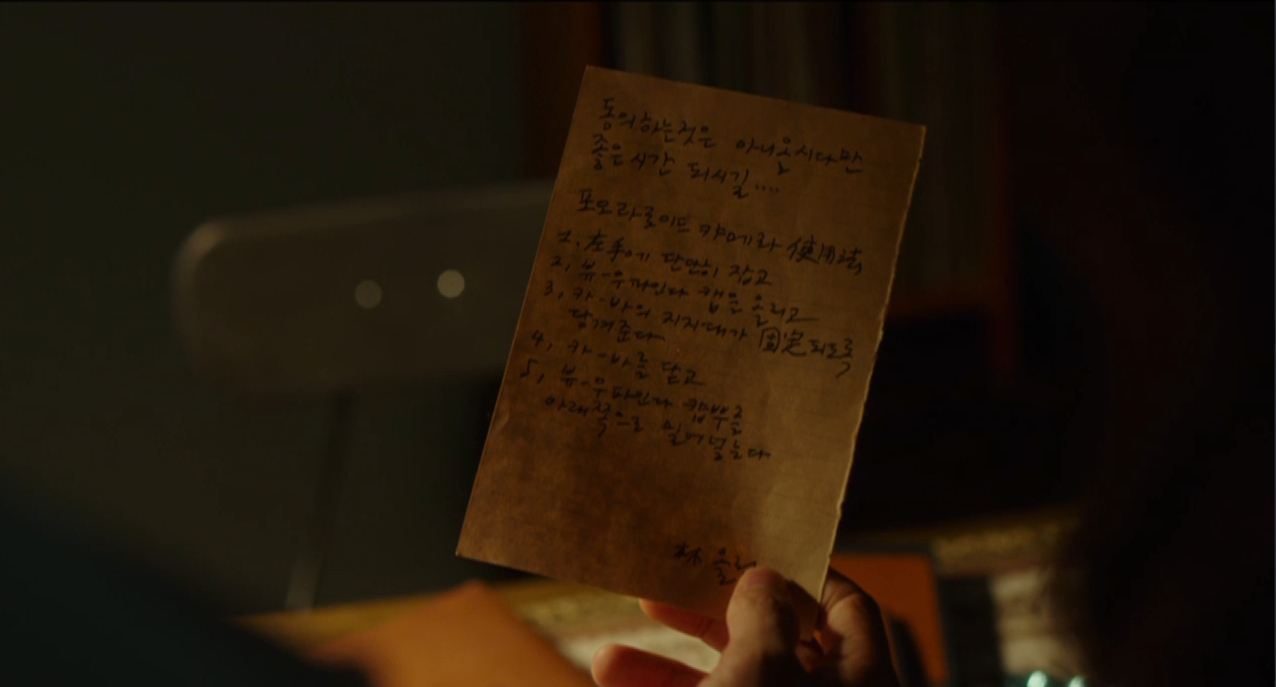 동의하는것은 아니올시다만
좋은 시간 되시길....
포오라로이드 캬메라 使用法
1, 左手에 단단히 잡고
2, 뷰-우파인다 캡을 올리고
3, 카-바의 지지대가 固定되도록
당겨준다
4, 카-바를 닫고
5, 뷰-우파인다 캡부를
아래쪽으로 밀어넣는다
林 올